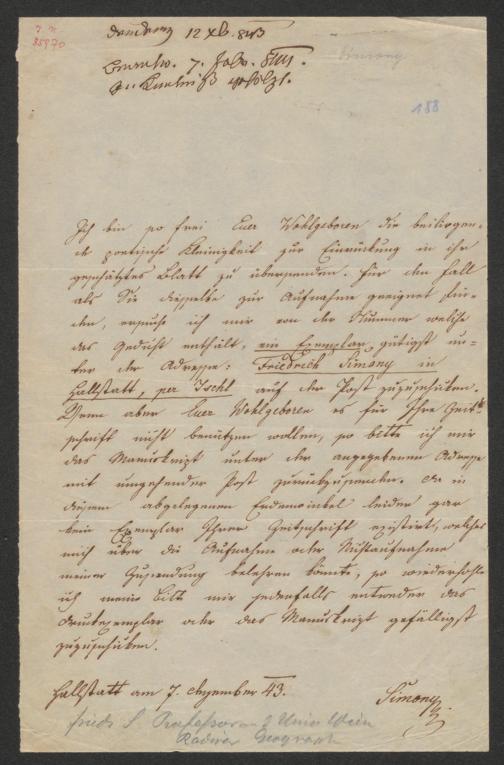 J. N.
35970
12 Xb. 843
Beantw. 7. Febr.
Simony
188
Ich bin so frei Euer Wohlgeboren die beiliegen-
de poetische Kleinigkeit zur Einrückung in ihr
geschätztes Blatt zu übersenden. Für den Fall
als Sie dieselbe zur Aufnahme geeignet fin-
den, ersuche ich mir von der Nummer welche
das Gedicht enthält, ein Exemplar gütigst un-
ter der Adresse: Friedrich Simony in
Hallstatt, per Ischl auf der Post zuzuschicken.
Wenn aber Euer Wohlgeboren es für Ihre Zeit-
schrift nicht benützen wollen, so bitte ich mir
das Manuskript unter der angegebenen Adresse
mit umgehender Post zurückzusenden. Da in
diesem abgelegenen Erdenwinkel leider gar
kein Exemplar Ihrer Zeitschrift existirt, welches
mich über die Aufnahme oder Nichtaufnahme
meiner Zusendung belehren könnte, so wiederhohle
ich meine Bitte mir jedenfalls entweder das
Druckexemplar oder das Manuskript gefälligst
zuzuschicken.
Hallstatt am 7. Dezember 43.
Simony
Friedr. S. Professor an d Univ. Wien
Geograph